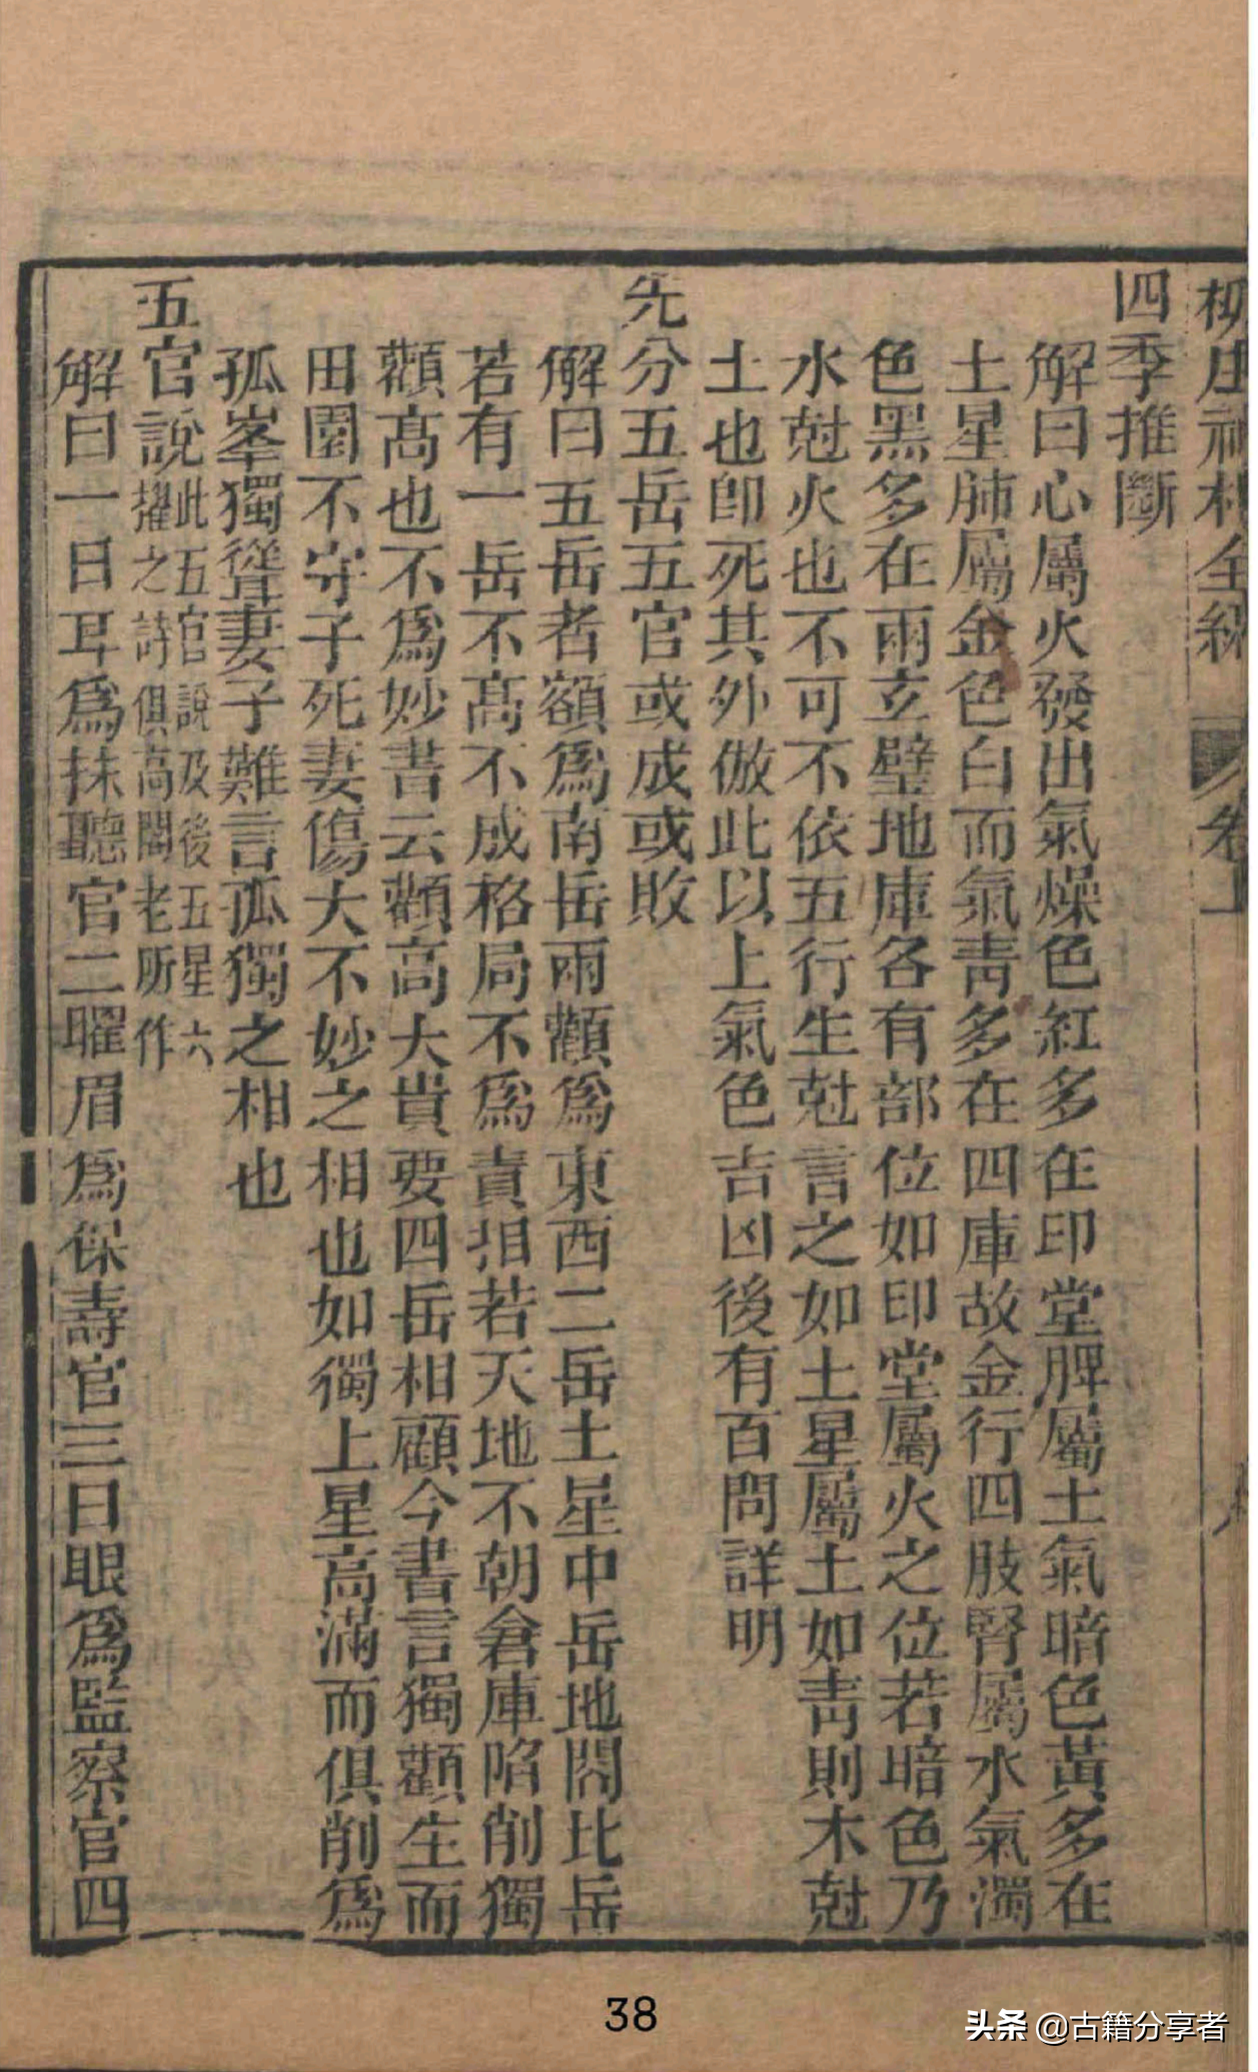 柳庄神相全編 卷上
四季推斷
解曰心屬火發出氣燥色紅多在印堂脾屬土氣暗色黃多在
土星肺屬金色白而氣靑多在四庫故金行四肢腎屬水氣濁
色黑多在兩玄璧地庫各有部位如印堂屬火之位若暗色乃
水尅火也不可不依五行生尅言之如土星屬土如靑則木尅
土也卽死其外倣此以上氣色吉凶後有百問詳明
先分五岳五官或成或敗
解曰五岳者額爲南岳兩顴爲東西二岳土星中岳地閣比岳
若有一岳不髙不成格局不爲責相若天地不朝倉庫陷削獨
顴髙也不爲妙書云顴高大貴要四岳相顧今書言獨顴生而
田園不守子死妻傷大不妙之相也如獨上星高滿而俱削爲
孤峯獨聳妻子難言孤獨之相也
五官說此五官說及後五星六
擢之詩俱高閣老所作
解曰一曰耳爲抹聽官二曜眉爲保壽官三曰眼爲監察官四
38
头条 @古籍分享者